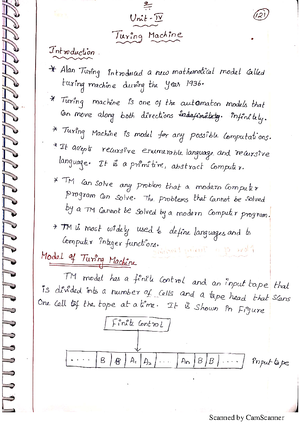 Unit - IV
121
Turing Machine
Introduction
* Alan Turing introduced a new mathematical model called
turing machine during the year 1936.
* Turing machine is one of the automaton models that
can move along both directions infinitely.
* Turing Machine is model for any possible computations.
* It accepts recursive enumerable language and recursive
language. It is a primitive, abstract computer.
* TM can solve any problem that a modern computer
program can solve. The problems that cannot be solved
by a TM cannot be solved by a modern computer program.
* TM is most widely used to define languages and to
Computer integer functions.
Model of Turing Machine
TM model has a finite control and an input tape that
is divided into a number of cells and a tape head that scans
One cell of the tape at a time. It is shown in Figure
Finite Control
.... B B A₁ A₂ .... An B B .... Input tape
Scanned by CamScanner